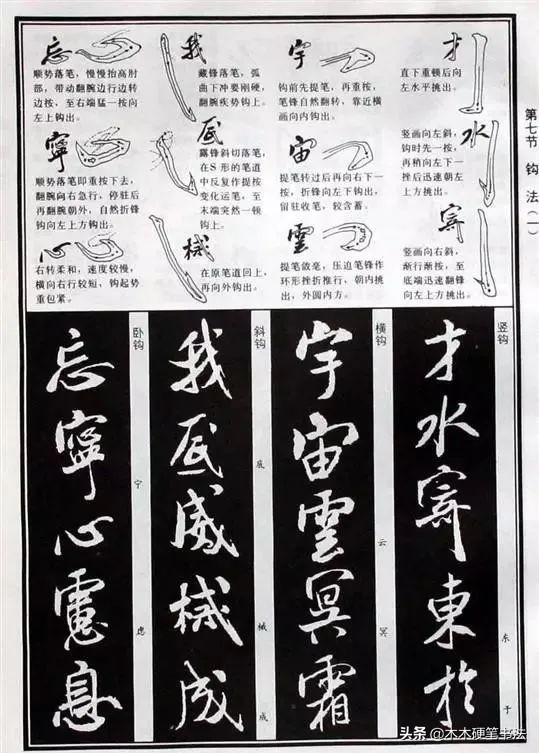 第七节 钩法(一)
才
直下重顿后向
左水平挑出。
水
竖画向左斜,
钩时先一按,
再稍向左下一
挫后迅速朝左
上方挑出。
寄
竖画向右斜,
渐行渐按,至
底端迅速翻锋
向左上方挑出。
宇
钩前先提笔,再重按,
笔锋自然翻转,靠近横
画向内钩出。
宙
提笔转过后再向右下一
按,折锋向左下钩出,
留驻收笔,较含蓄。
雲
提笔敛毫,压迫笔锋作
环形挫折推行,朝内挑
出,外圆内方。
我
藏锋落笔,弧
曲下冲要刚硬,
翻腕疾势钩上。
底
露锋斜切落笔,
在S形的笔道
中反复作提按
变化运笔,至
末端突然一顿
钩上。
械
在原笔道回上,
再向外钩出。
忘
顺势落笔,慢慢抬高肘
部,带动翻腕边行边转
边按,至右端猛一按向
左上钩出。
寧
顺势落笔即重按下去,
翻腕向右急行,停驻后
再翻腕朝外,自然折锋
钩向左上方钩出。
心
右转柔和,速度较慢,
横向右行较短,钩起势
重包紧。
竖钩
才水寄東於
东 于
横钩
宇宙雲冥霜
云 冥
斜钩
我底威械成
底 械 成
卧钩
忘寧心慮息
宁 虑
头条 @木木硬笔书法